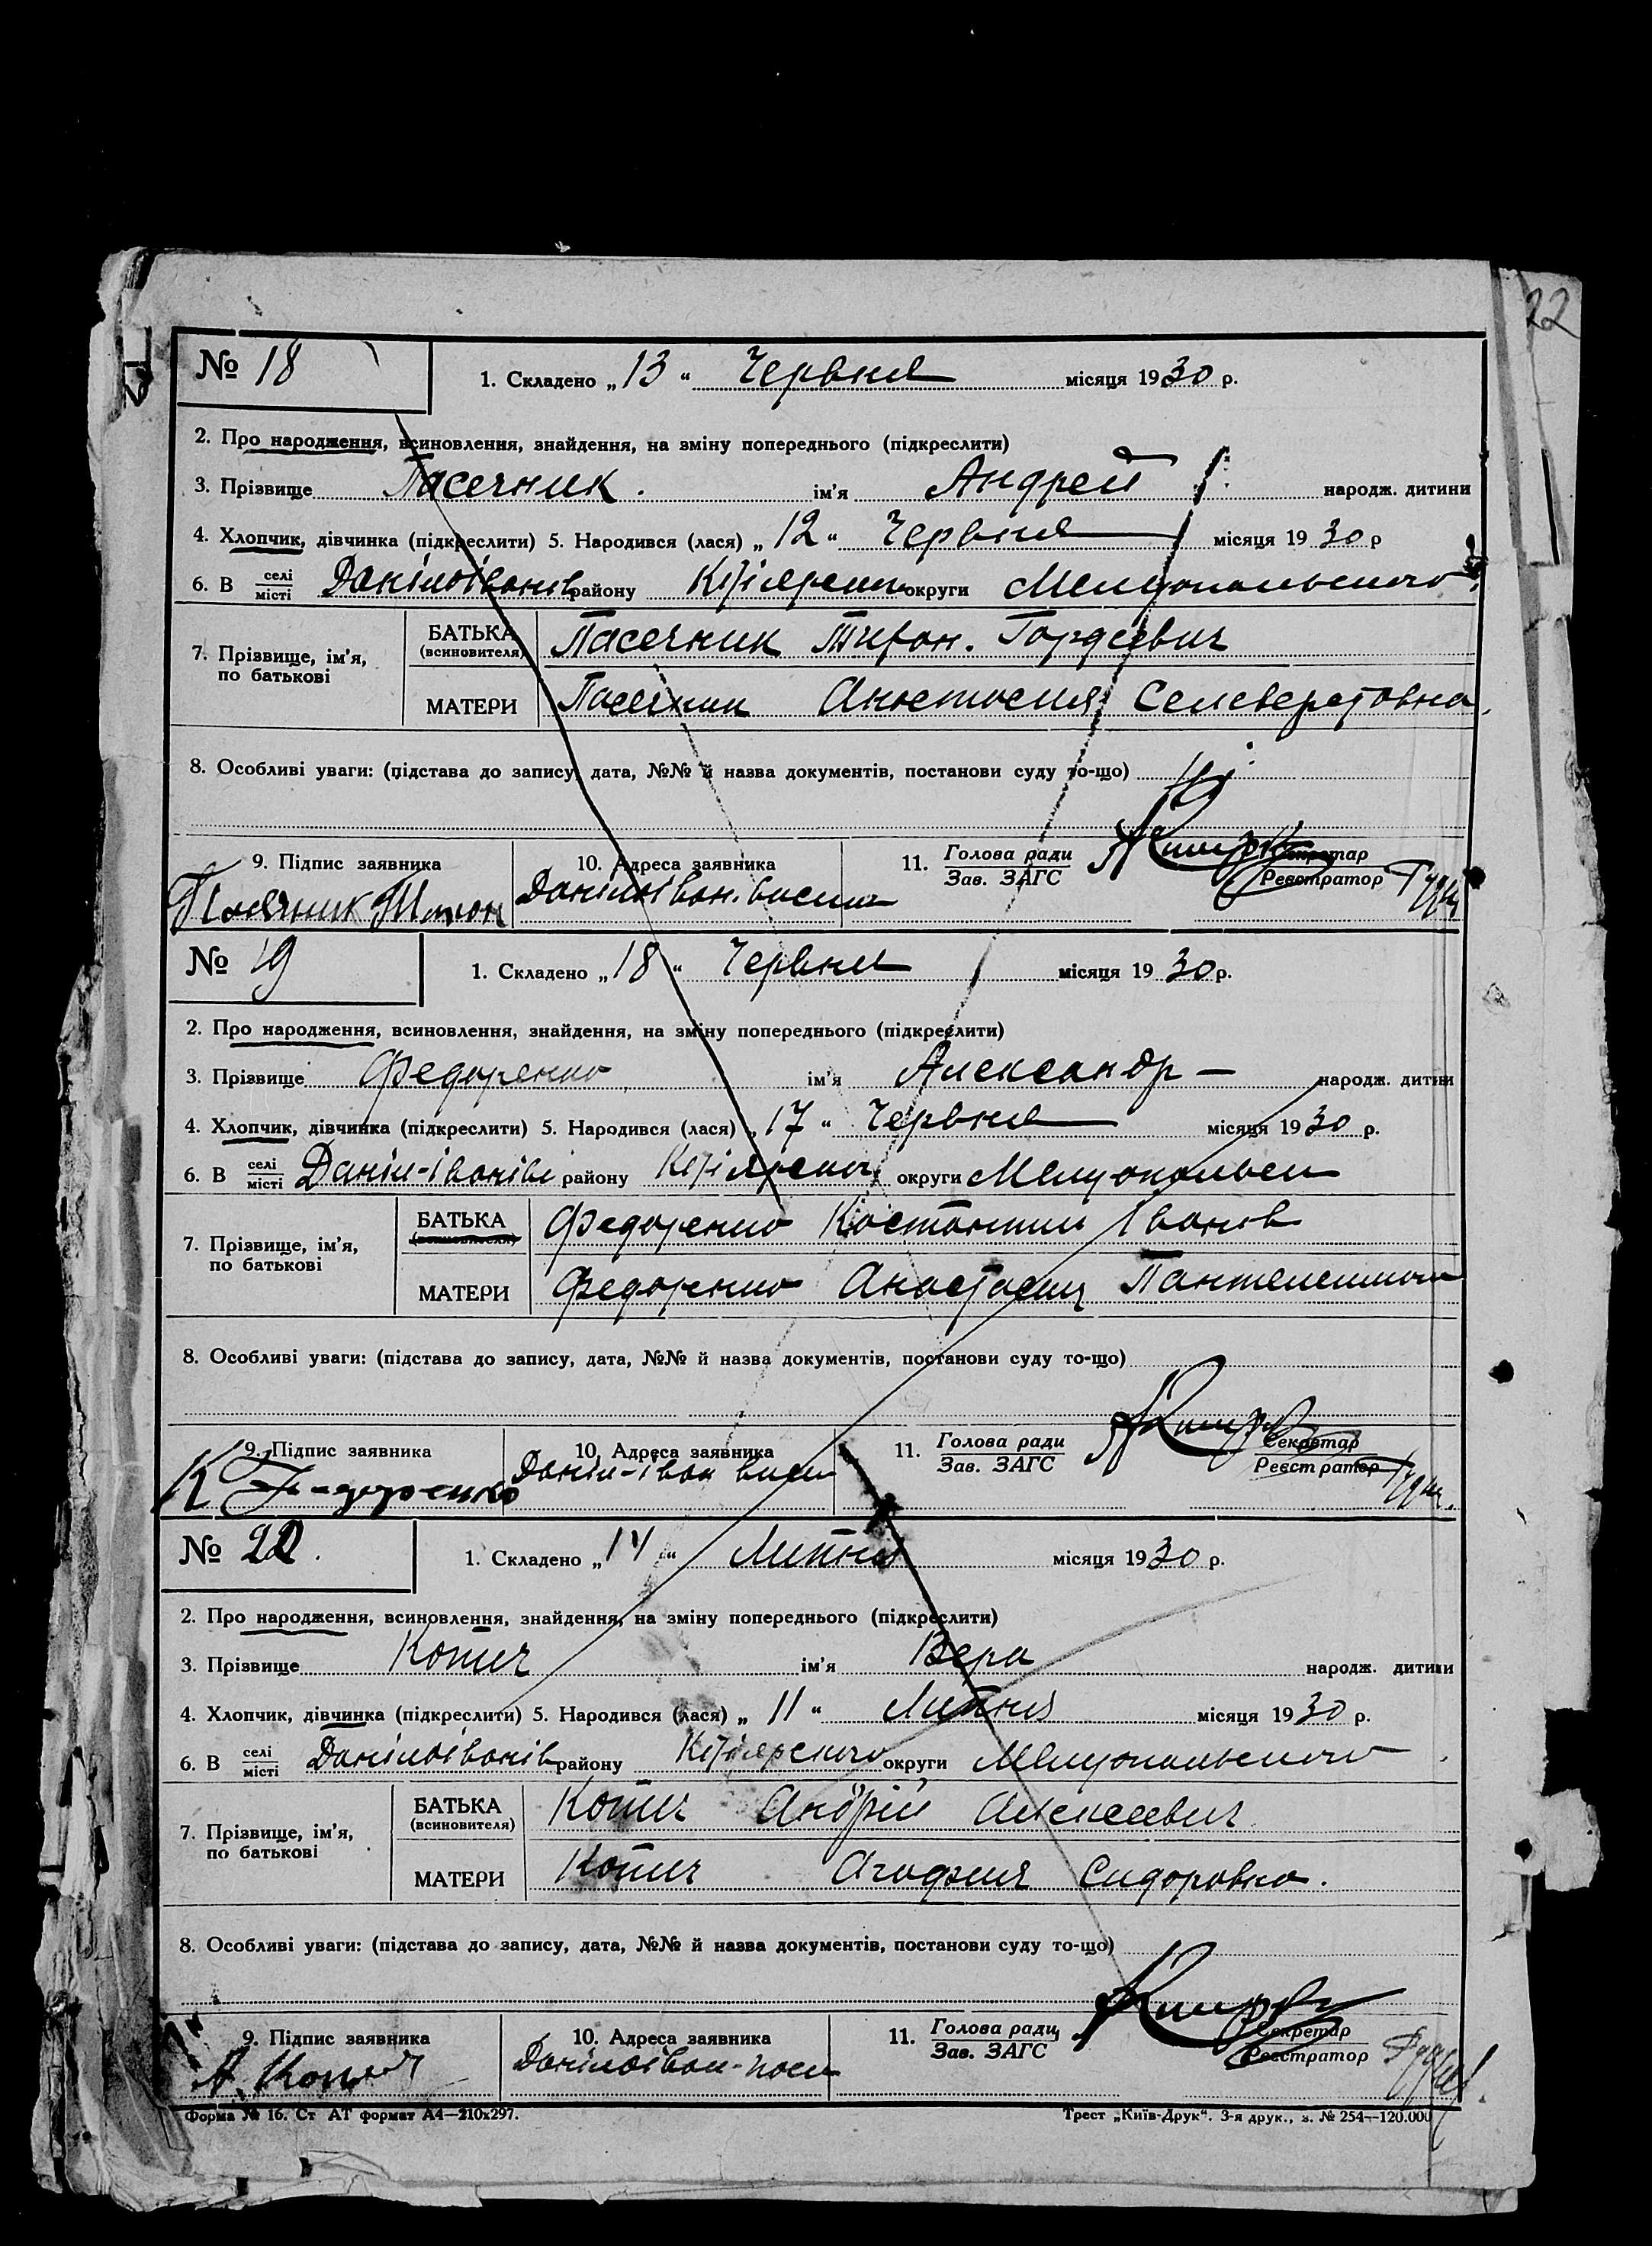 22
№ 18
1. Складено „ 13 “ Червня місяця 1930 р.
2. Про народження, всиновлення, знайдення, на зміну попереднього (підкреслити)
3. Прізвище Пасечник. ім'я Андрей народж. дитини
4. Хлопчик, дівчинка (підкреслити) 5. Народився (лася) „ 12 “ Червня місяця 1930 р
6. В селі місті Данілоіванів району округи Мелитопольського
7. Прізвище, ім'я, по батькові
БАТЬКА (всиновителя) Пасечник Гордеевич
МАТЕРИ Пасечник Анастасия Селеверстовна
8. Особливі уваги: (підстава до запису, дата, №№ й назва документів, постанови суду то-що)
9. Підпис заявника 10. Адреса заявника 11. Голова ради Зав. ЗАГС Секретар Реєстратор
Данілоіван.
№ 19
1. Складено „ 18 “ Червня місяця 1930 р.
2. Про народження, всиновлення, знайдення, на зміну попереднього (підкреслити)
3. Прізвище Федоренко ім'я Александр — народж. дитини
4. Хлопчик, дівчинка (підкреслити) 5. Народився (лася) „ 17 “ Червня місяця 1930 р.
6. В селі місті Даніл-іванівк району округи Мелитопольськ
7. Прізвище, ім'я, по батькові
БАТЬКА (всиновителя) Федоренко Костантин Іванов
МАТЕРИ Федоренко Анастасия
8. Особливі уваги: (підстава до запису, дата, №№ й назва документів, постанови суду то-що)
9. Підпис заявника 10. Адреса заявника 11. Голова ради Зав. ЗАГС Секретар Реєстратор
К Федоренко Даніл-іван
№ 22.
1. Складено „ 14 “ Липня місяця 1930 р.
2. Про народження, всиновлення, знайдення, на зміну попереднього (підкреслити)
3. Прізвище Копич ім'я Вера народж. дитини
4. Хлопчик, дівчинка (підкреслити) 5. Народився (лася) „ 11 “ Липня місяця 1930 р.
6. В селі місті Данілоіванів району округи Мелитопольського
7. Прізвище, ім'я, по батькові
БАТЬКА (всиновителя) Копич Андрій Алексеевич
МАТЕРИ Копич Агафия Сидоровна.
8. Особливі уваги: (підстава до запису, дата, №№ й назва документів, постанови суду то-що)
9. Підпис заявника 10. Адреса заявника 11. Голова ради Зав. ЗАГС Секретар Реєстратор
А. Копич Данілоіван-
Форма № 16. Ст АТ формат А4—210x297. Трест „Київ-Друк“. 3-я друк., з. № 254—120.000